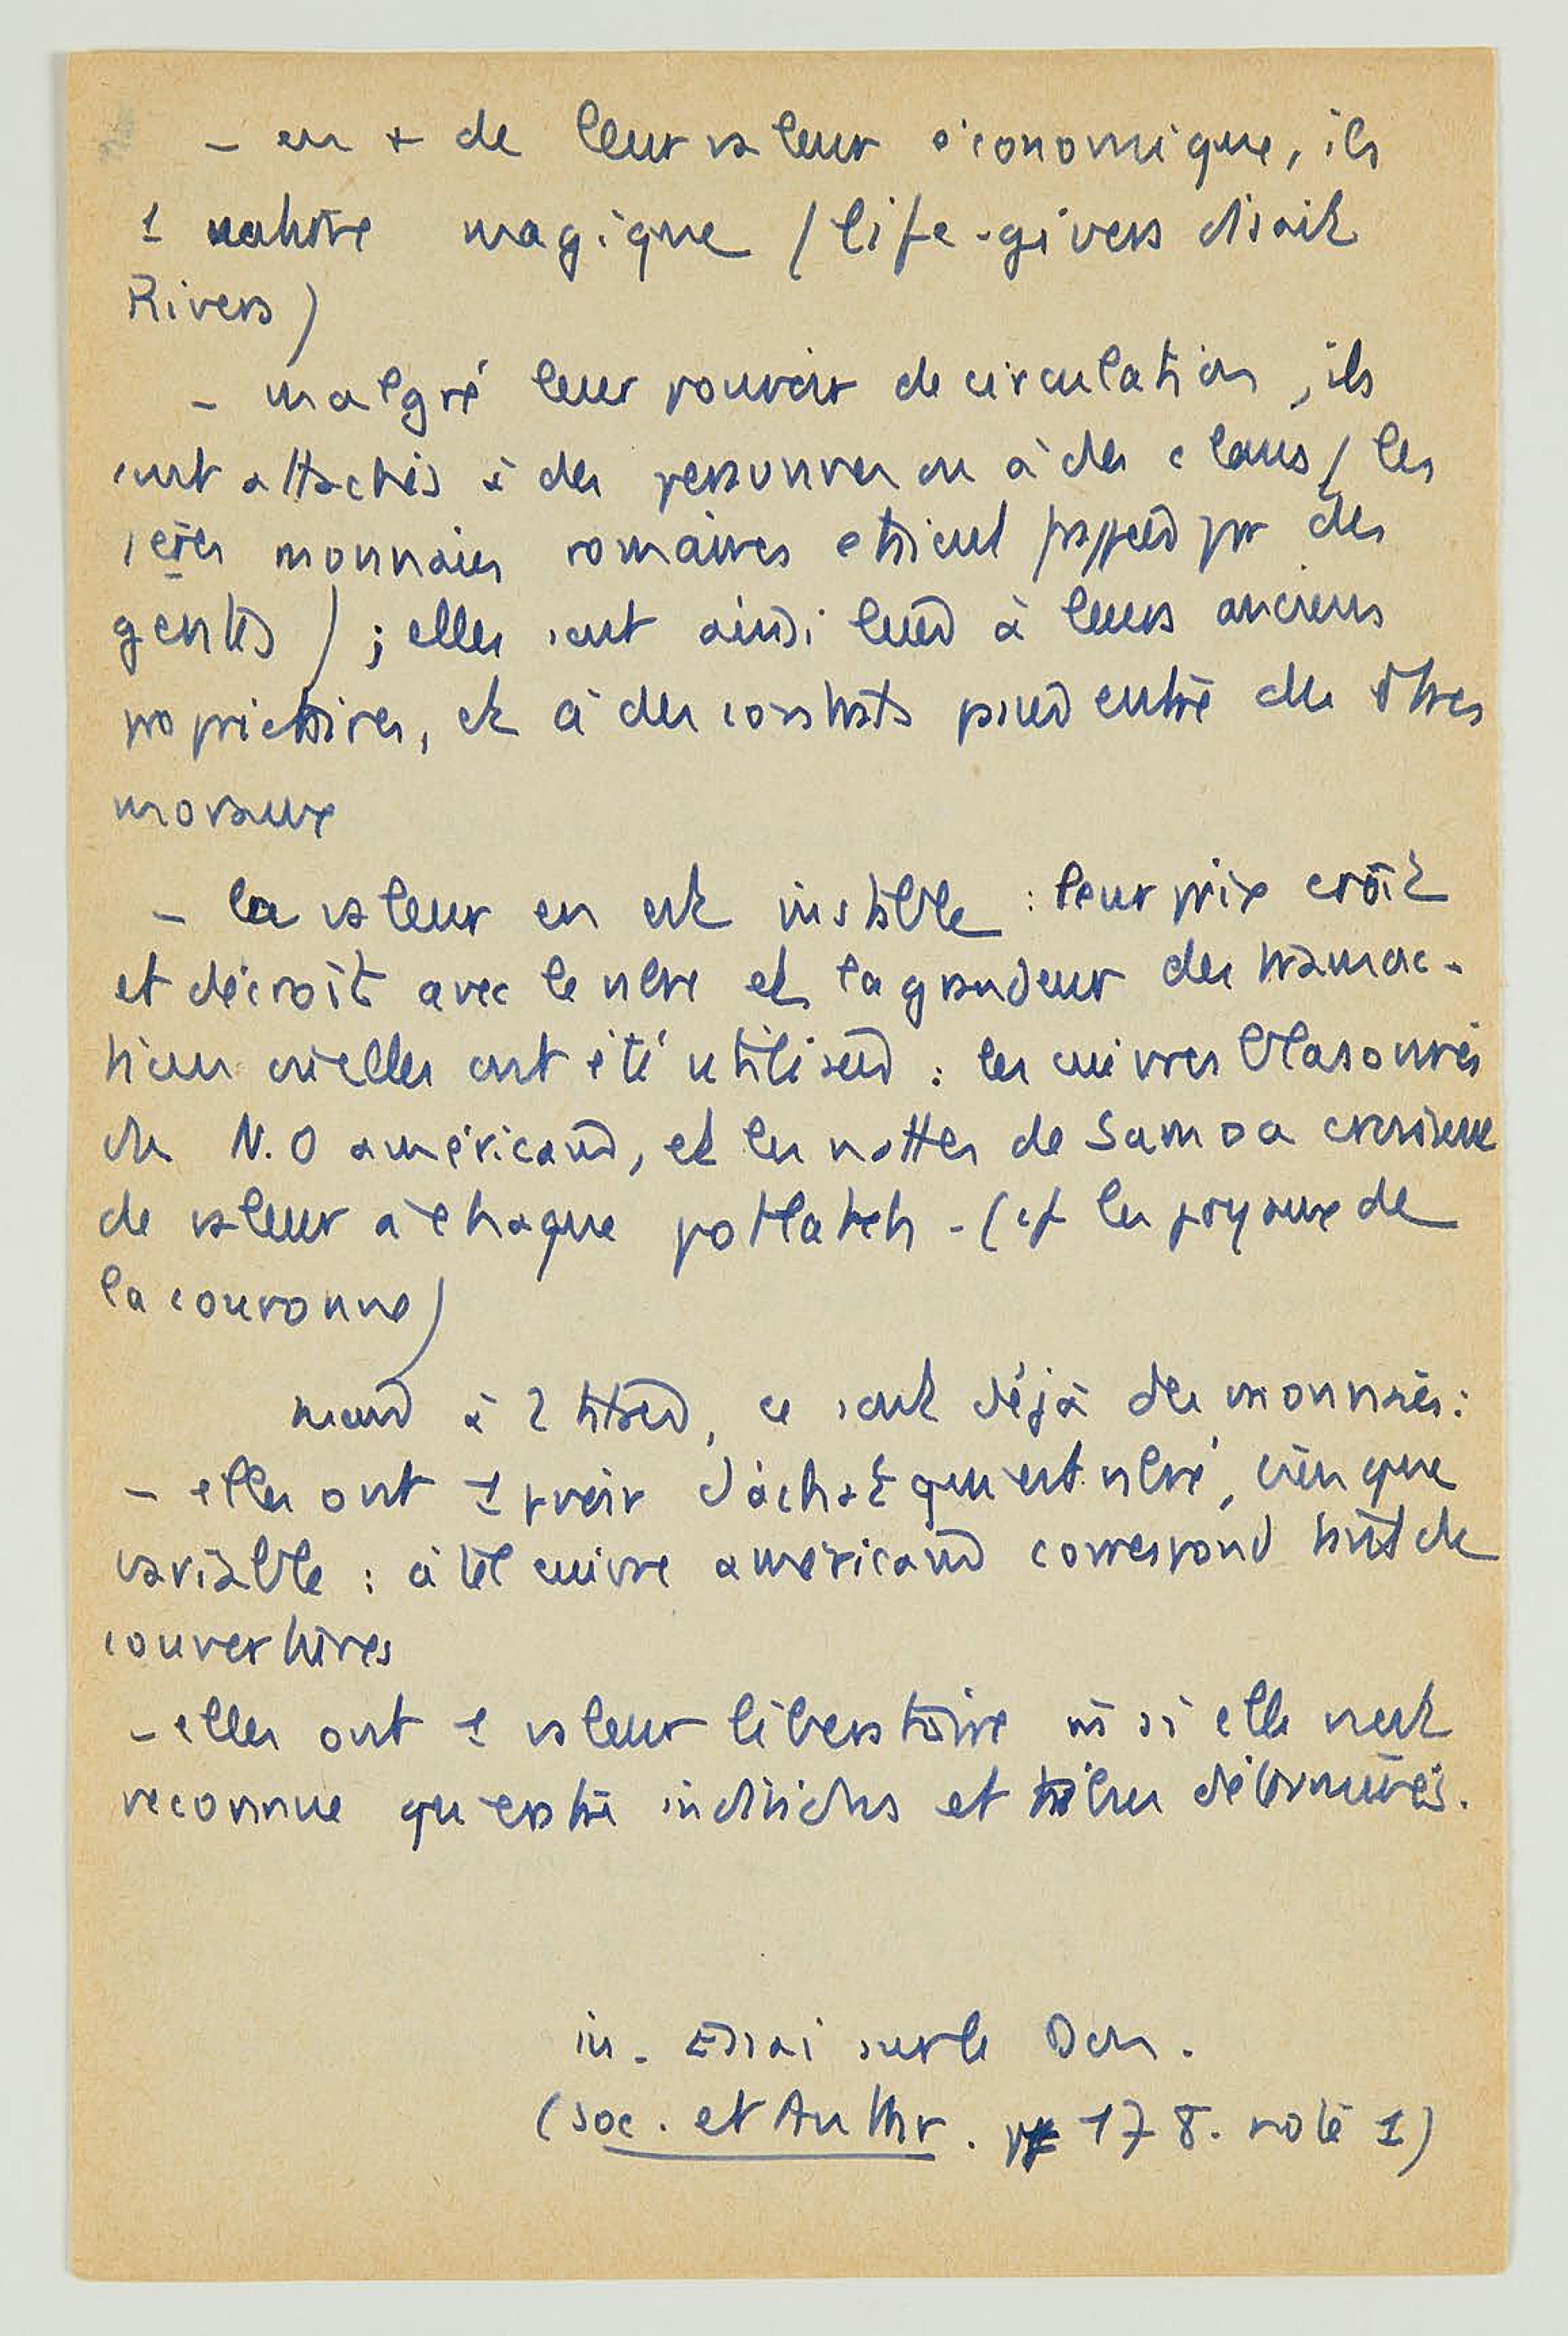 - en + de leur valeur économique, ils
1 nature magique (life-givers disait
Rivers)
- malgré leur pouvoir de circulation, ils
sont attachés à des personnes ou à des clans (les
1ères monnaies romaines étaient frappées par des
gentes) ; elles sont ainsi à leurs anciens
propriétaires, et à des contrats passés entre des êtres
moraux
- la valeur en est instable : leur prix croît
et décroît avec le nbre et la grandeur des transac-
tions où elles ont été utilisées : les cuivres blasonnés
du N.O américain, et les nattes de Samoa croissent
de valeur à chaque potlatch - (cf les joyaux de
la couronne)
à 2 titres, ce sont déjà des monnaies :
- elles ont 1 pvoir d'achat qui est nbré, bien que
variable : à tel cuivre américain correspond tant de
couvertures
- elles ont 1 valeur libératoire m si elle n'est
reconnue qu'entre individus et tribus déterminés.
in. Essai sur le Don.
(Soc. et Anthr. p 178. note 1)